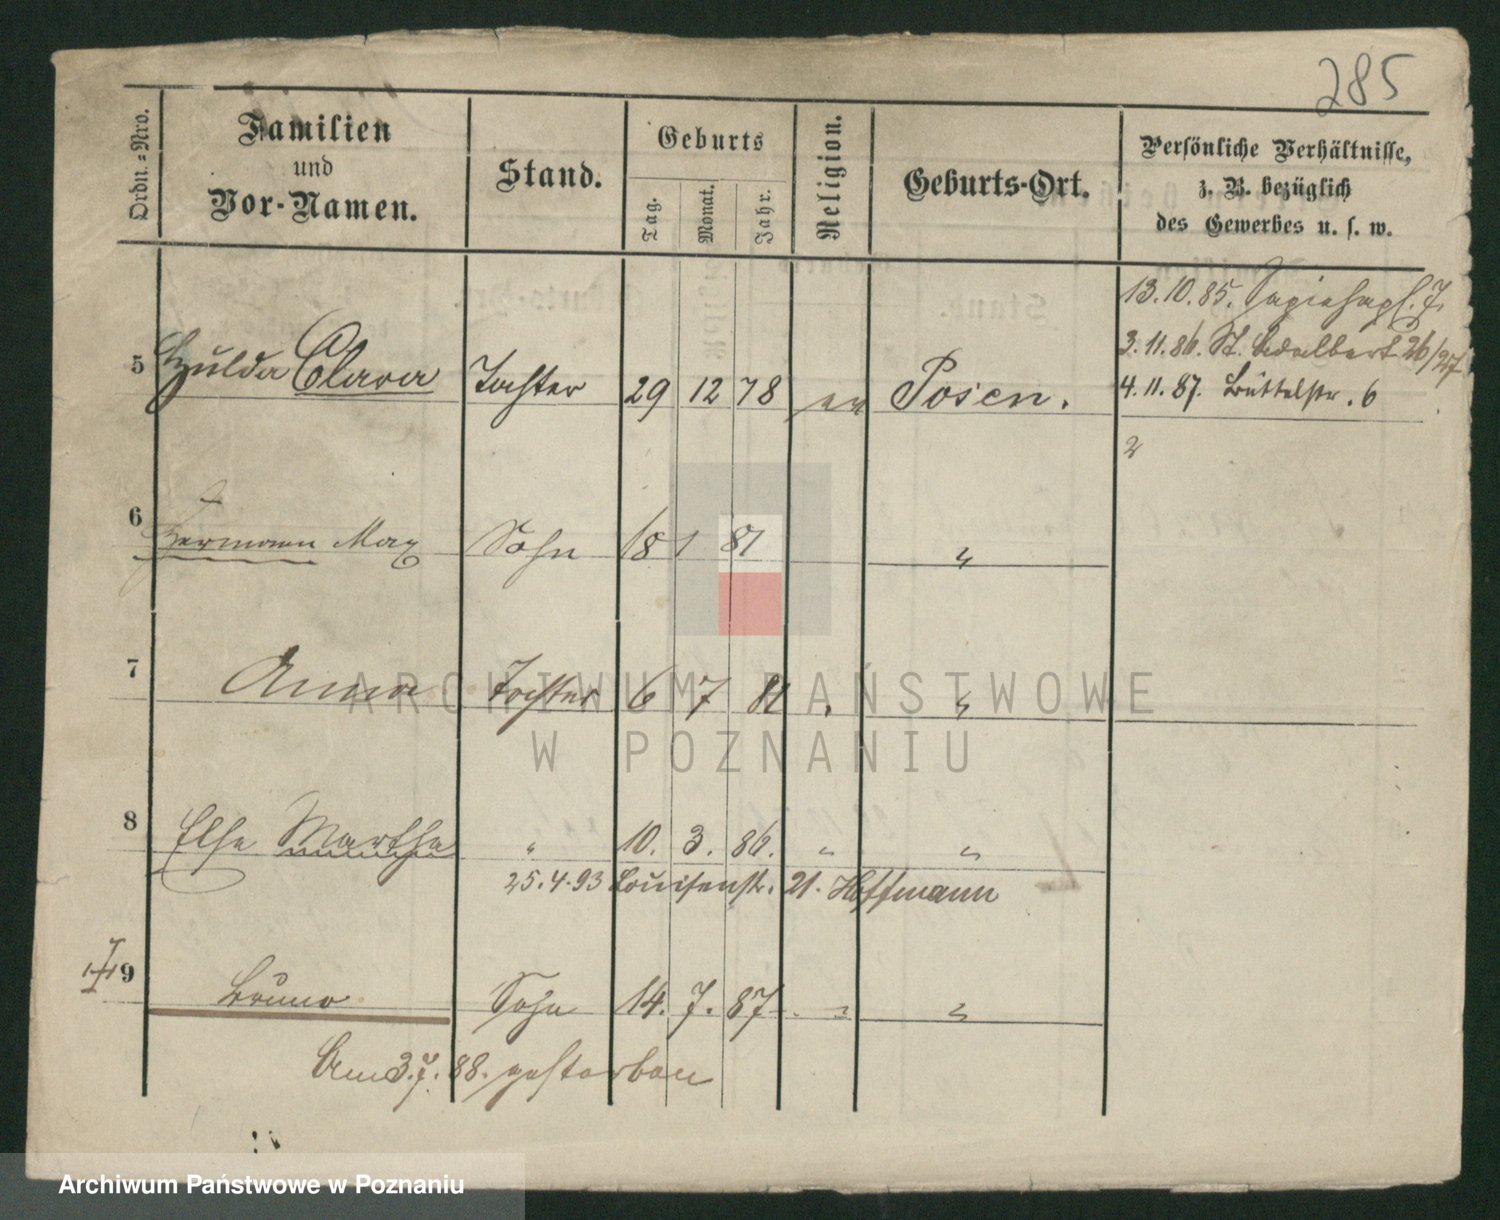 285
Ordn.=Nro.
Familien
und
Vor-Namen.
Stand.
Geburts
Tag.
Monat.
Jahr.
Religion.
Geburts-Ort.
Persönliche Verhältnisse,
z. B. bezüglich
des Gewerbes u. s. w.
13.10.85. Sapiehapl. 7.
3.11.86. St. Adalbert 26/27
5 Hulda Clara Tochter 29 12 78 ev Posen. 4.11.87. Büttelstr. 6
6 Hermann Max Sohn 18 1 81 "
7 Anna Tochter 6 7 81 "
8 Else Martha " 10. 3. 86. " "
25.4.93 Louisenstr. 21. Hoffmann
9 Bruno Sohn 14. 7. 87 " "
Am 3.7. 88. gestorben
ARCHIWUM PAŃSTWOWE
W POZNANIU
Archiwum Państwowe w Poznaniu